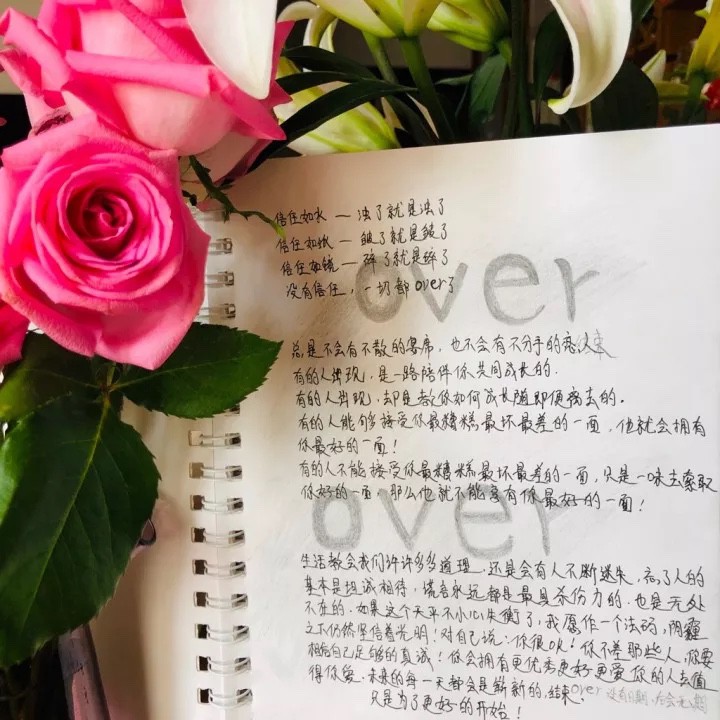 信任如水 — 浊了就是浊了
信任如纸 — 皱了就是皱了
信任如镜 — 碎了就是碎了
没有信任，一切都over了
over
总是不会有不散的宴席，也不会有不分手的恋人
有的人出现，是一路陪伴你共同成长的.
有的人出现，却是教你如何成长随即便离去的.
有的人能够接受你最糟糕最坏最差的一面，他就会拥有
你最好的一面！
有的人不能接受你最糟糕最坏最差的一面，只是一味去索取
你好的一面，那么他就不能享有你最好的一面！
over
生活教会我们许许多多道理，还是会有人不断迷失，
基本是坦诚相待，谎言永远都是最具杀伤力的.也是无处
不在的.如果这个天平不小心失衡了，我愿作一个法码，阴霾
之下仍然坚信着光明！对自己说：你很 ！你不差那些人，你要
相信自己足够的真诚！你会拥有更优秀更好更爱你的人去值
得你爱.未来的每一天都会是崭新的，结束.over 还有日期.后会无期
只是为了更好的开始！